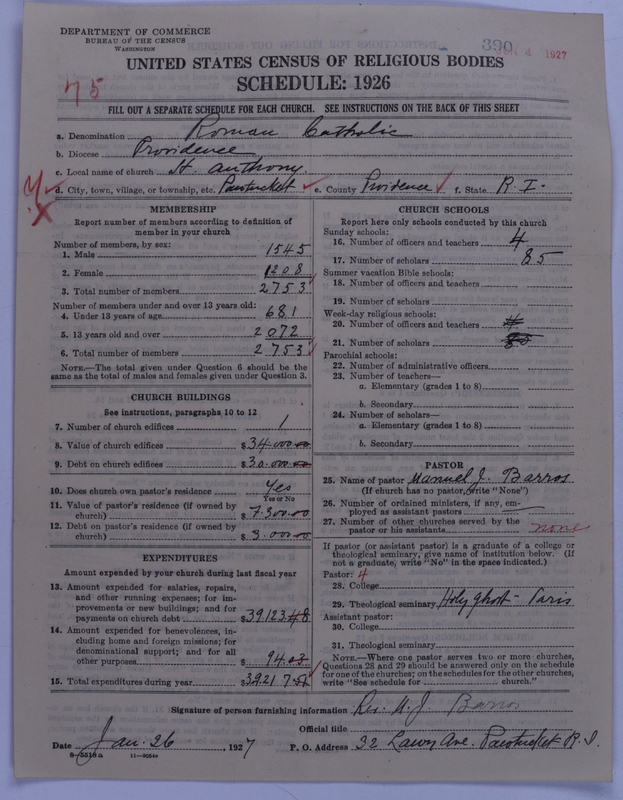 DEPARTMENT OF COMMERCE
BUREAU OF THE CENSUS
WASHINGTON
390
1927
UNITED STATES CENSUS OF RELIGIOUS BODIES
SCHEDULE: 1926
75
FILL OUT A SEPARATE SCHEDULE FOR EACH CHURCH. SEE INSTRUCTIONS ON THE BACK OF THIS SHEET
a. Denomination Roman Catholic
b. Diocese Providence
c. Local name of church St. Anthony.
d. City, town, village, or township, etc. Pawtucket e. County Providence f. State R. I.
MEMBERSHIP
Report number of members according to definition of member in your church
Number of members, by sex:
1. Male 1545
2. Female 1208
3. Total number of members 2753
Number of members under and over 13 years old:
4. Under 13 years of age 681
5. 13 years old and over 2072
6. Total number of members 2753
NOTE.—The total given under Question 6 should be
same as the total of males and females given under Question 3.
CHURCH BUILDINGS
See instructions, paragraphs 10 to 12
7. Number of church edifices 1
8. Value of church edifices $34.000.00
9. Debt on church edifices $30.000.00
10. Does church own pastor's residence Yes
Yes or No
11. Value of pastor's residence (if owned by
church) $7.500.00
12. Debt on pastor's residence (if owned by
church) $3.000.00
EXPENDITURES
Amount expended by your church during last fiscal year
13. Amount expended for salaries, repairs,
and other running expenses; for im-
provements or new buildings; and for
payments on church debt $39123.48
14. Amount expended for benevolences, in-
cluding home and foreign missions; for
denominational support; and for all
other purposes $94.03
15. Total expenditures during year $39217.51
CHURCH SCHOOLS
Report here only schools conducted by this church
Sunday schools:
16. Number of officers and teachers 4
17. Number of scholars 85
Summer vacation Bible schools:
18. Number of officers and teachers
19. Number of scholars
Week-day religious schools:
20. Number of officers and teachers
21. Number of scholars
Parochial schools:
22. Number of administrative officers
23. Number of teachers—
a. Elementary (grades 1 to 8)
b. Secondary
24. Number of scholars—
a. Elementary (grades 1 to 8)
b. Secondary
PASTOR
25. Name of pastor Manuel J. Barros
(If church has no pastor, write "None")
26. Number of ordained ministers, if any, em-
ployed as assistant pastors
27. Number of other churches served by the
pastor or his assistants none
If pastor (or assistant pastor) is a graduate of a college or
theological seminary, give name of institution below. (If
not a graduate, write "No" in the space indicated.)
Pastor: 4
28. College
29. Theological seminary Holy Ghost - Paris
Assistant pastor:
30. College
31. Theological seminary
NOTE.—Where one pastor serves two or more churches,
Questions 28 and 29 should be answered only on the schedule
for one of the churches; on the schedules for the other churches,
write "See schedule for church."
Signature of person furnishing information Rev. M. J. Barros
Official title
Date Jan. 26, 1927 P. O. Address 32 Lawn Ave. Pawtucket R. I.
8-5518a 11-9054a